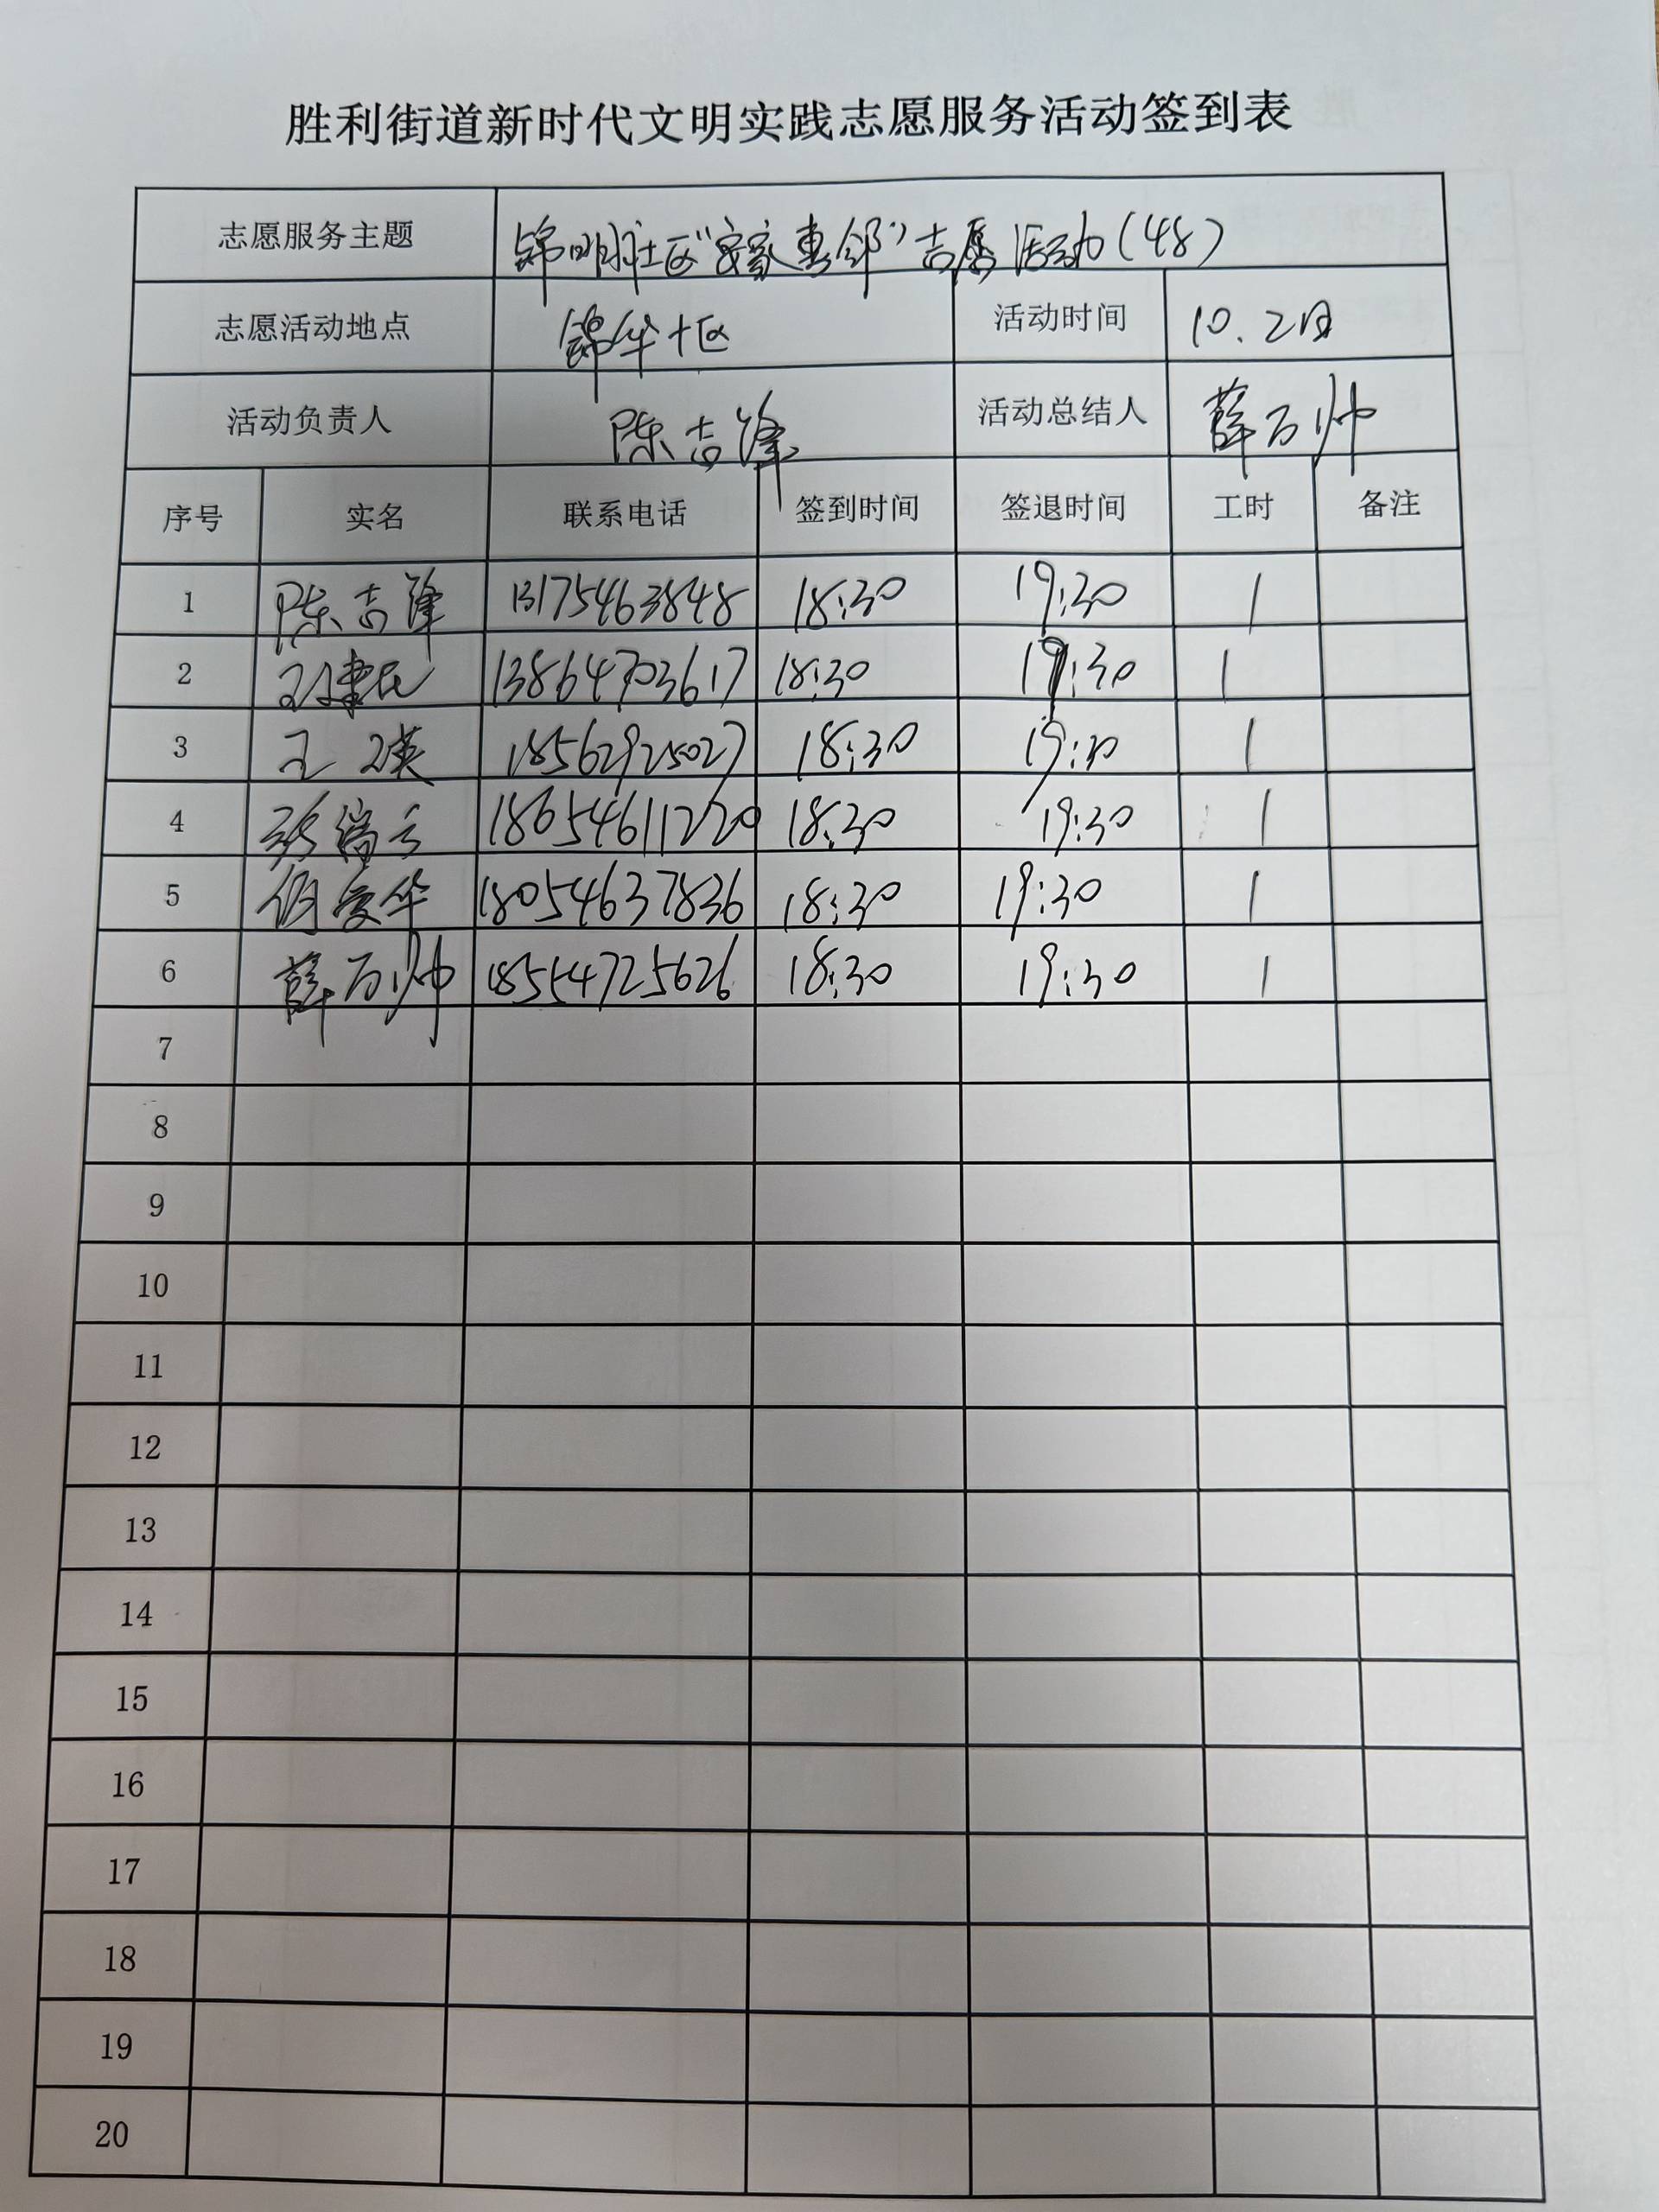 胜利街道新时代文明实践志愿服务活动签到表
志愿服务主题 锦明社区“安家惠邻”志愿活动(48)
志愿活动地点 锦华十区 活动时间 10.2日
活动负责人 陈志峰 活动总结人 薛万帅
序号 实名 联系电话 签到时间 签退时间 工时 备注
1 陈志峰 13175463848 18:30 19:30 1
2 13864703617 18:30 19:30 1
3 王瑛 18562925027 18:30 19:30 1
4 张瑞云 18654611220 18:30 19:30 1
5 爱华 18054637836 18:30 19:30 1
6 薛万帅 18554725626 18:30 19:30 1
7
8
9
10
11
12
13
14
15
16
17
18
19
20